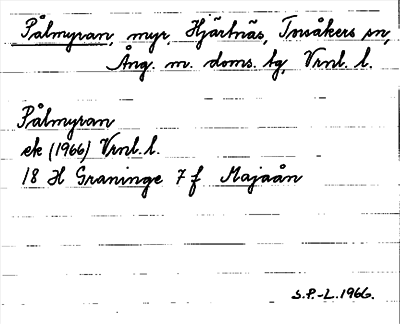 Pålmyran, myr, Hjärtnäs, Torsåkers sn,
Ång. m. doms. tg, Vrnl. l.
Pålmyran
ek (1966) Vrnl. l.
18 H Graninge 7 f Majaån
S.P.-L. 1966.